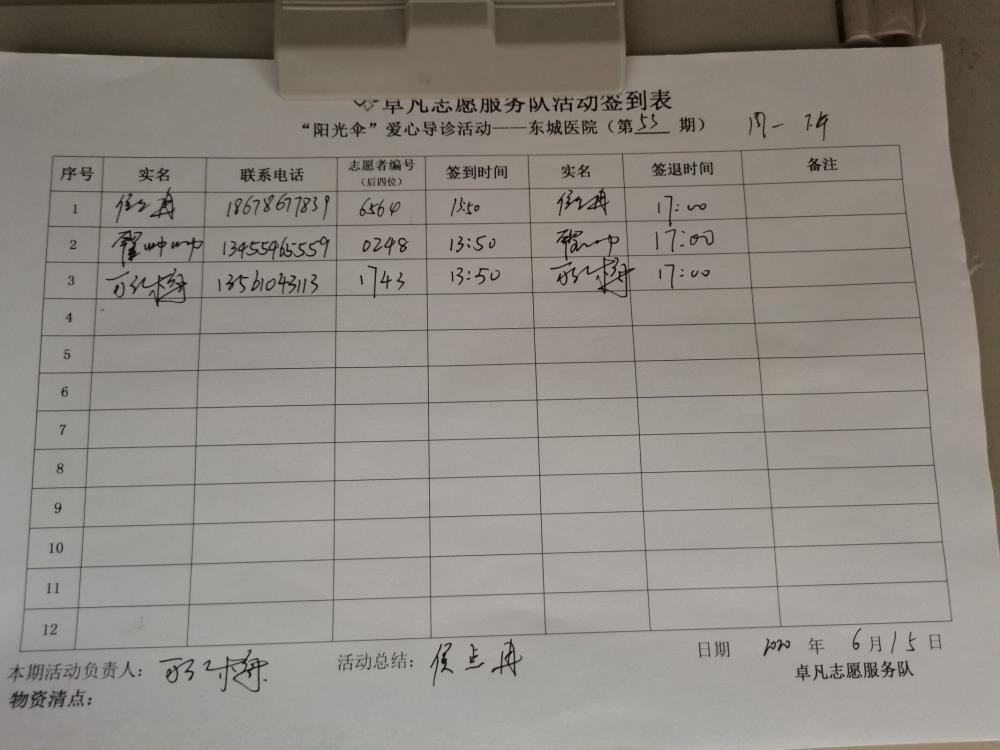 卓凡志愿服务队活动签到表
“阳光伞”爱心导诊活动——东城医院（第53期） 周一 下午
序号 实名 联系电话 志愿者编号（后四位） 签到时间 实名 签退时间 备注
1 18678677839 6564 13:50 17:00
2 翟帅帅 13455465559 0248 13:50 翟帅帅 17:00
3 13561043113 1743 13:50 17:00
4
5
6
7
8
9
10
11
12
本期活动负责人： 活动总结： 日期 2020 年 6 月 15 日
物资清点： 卓凡志愿服务队